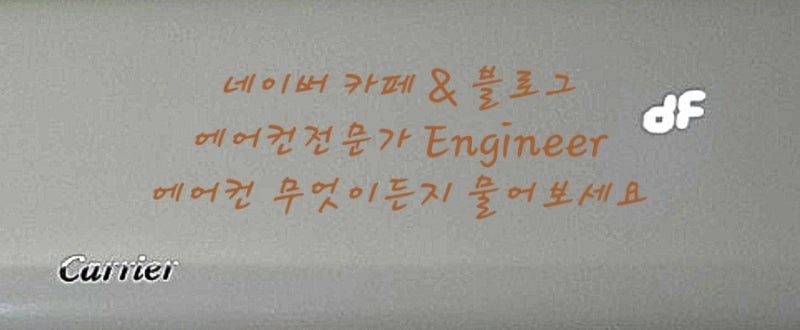 네이버 카페 & 블로그
dF
에어컨전문가 Engineer
에어컨 무엇이든지 물어보세요
Carrier